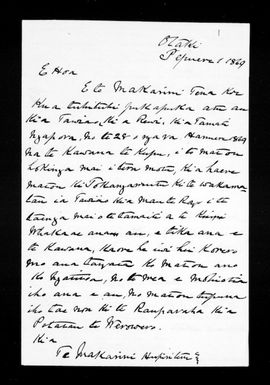 Otaki
Pepuere 1 1869
E Hoa
E te Makarini Tena koe
Kua tuhituhi pukapuka atu au
Kia Tawiao, Kia Rewi, Kia Tamati
Ngapora, No te 28 o nga ra Hanuere 1869
Na te Kawana te Kupu, i te matou
hokinga mai i tera motu, Kia haere
matou ki Tokangamutu ki te wakama
tau ia Tawiao Kia Mau te Rongo i te
taenga mai o te tamaiti a te Kuini
Whakaae ana au, e tika ana e
te Kawana, Kaore he iwi hei Korero
mo ana tangata ko matou ano
ko Ngatitoa, No te mea e mohiotia
iho ana e au, No matou tupuna
iho tae noa ki te Rauparaha Kia
Potatau te Wherowhero.
Kia
Te Makarini